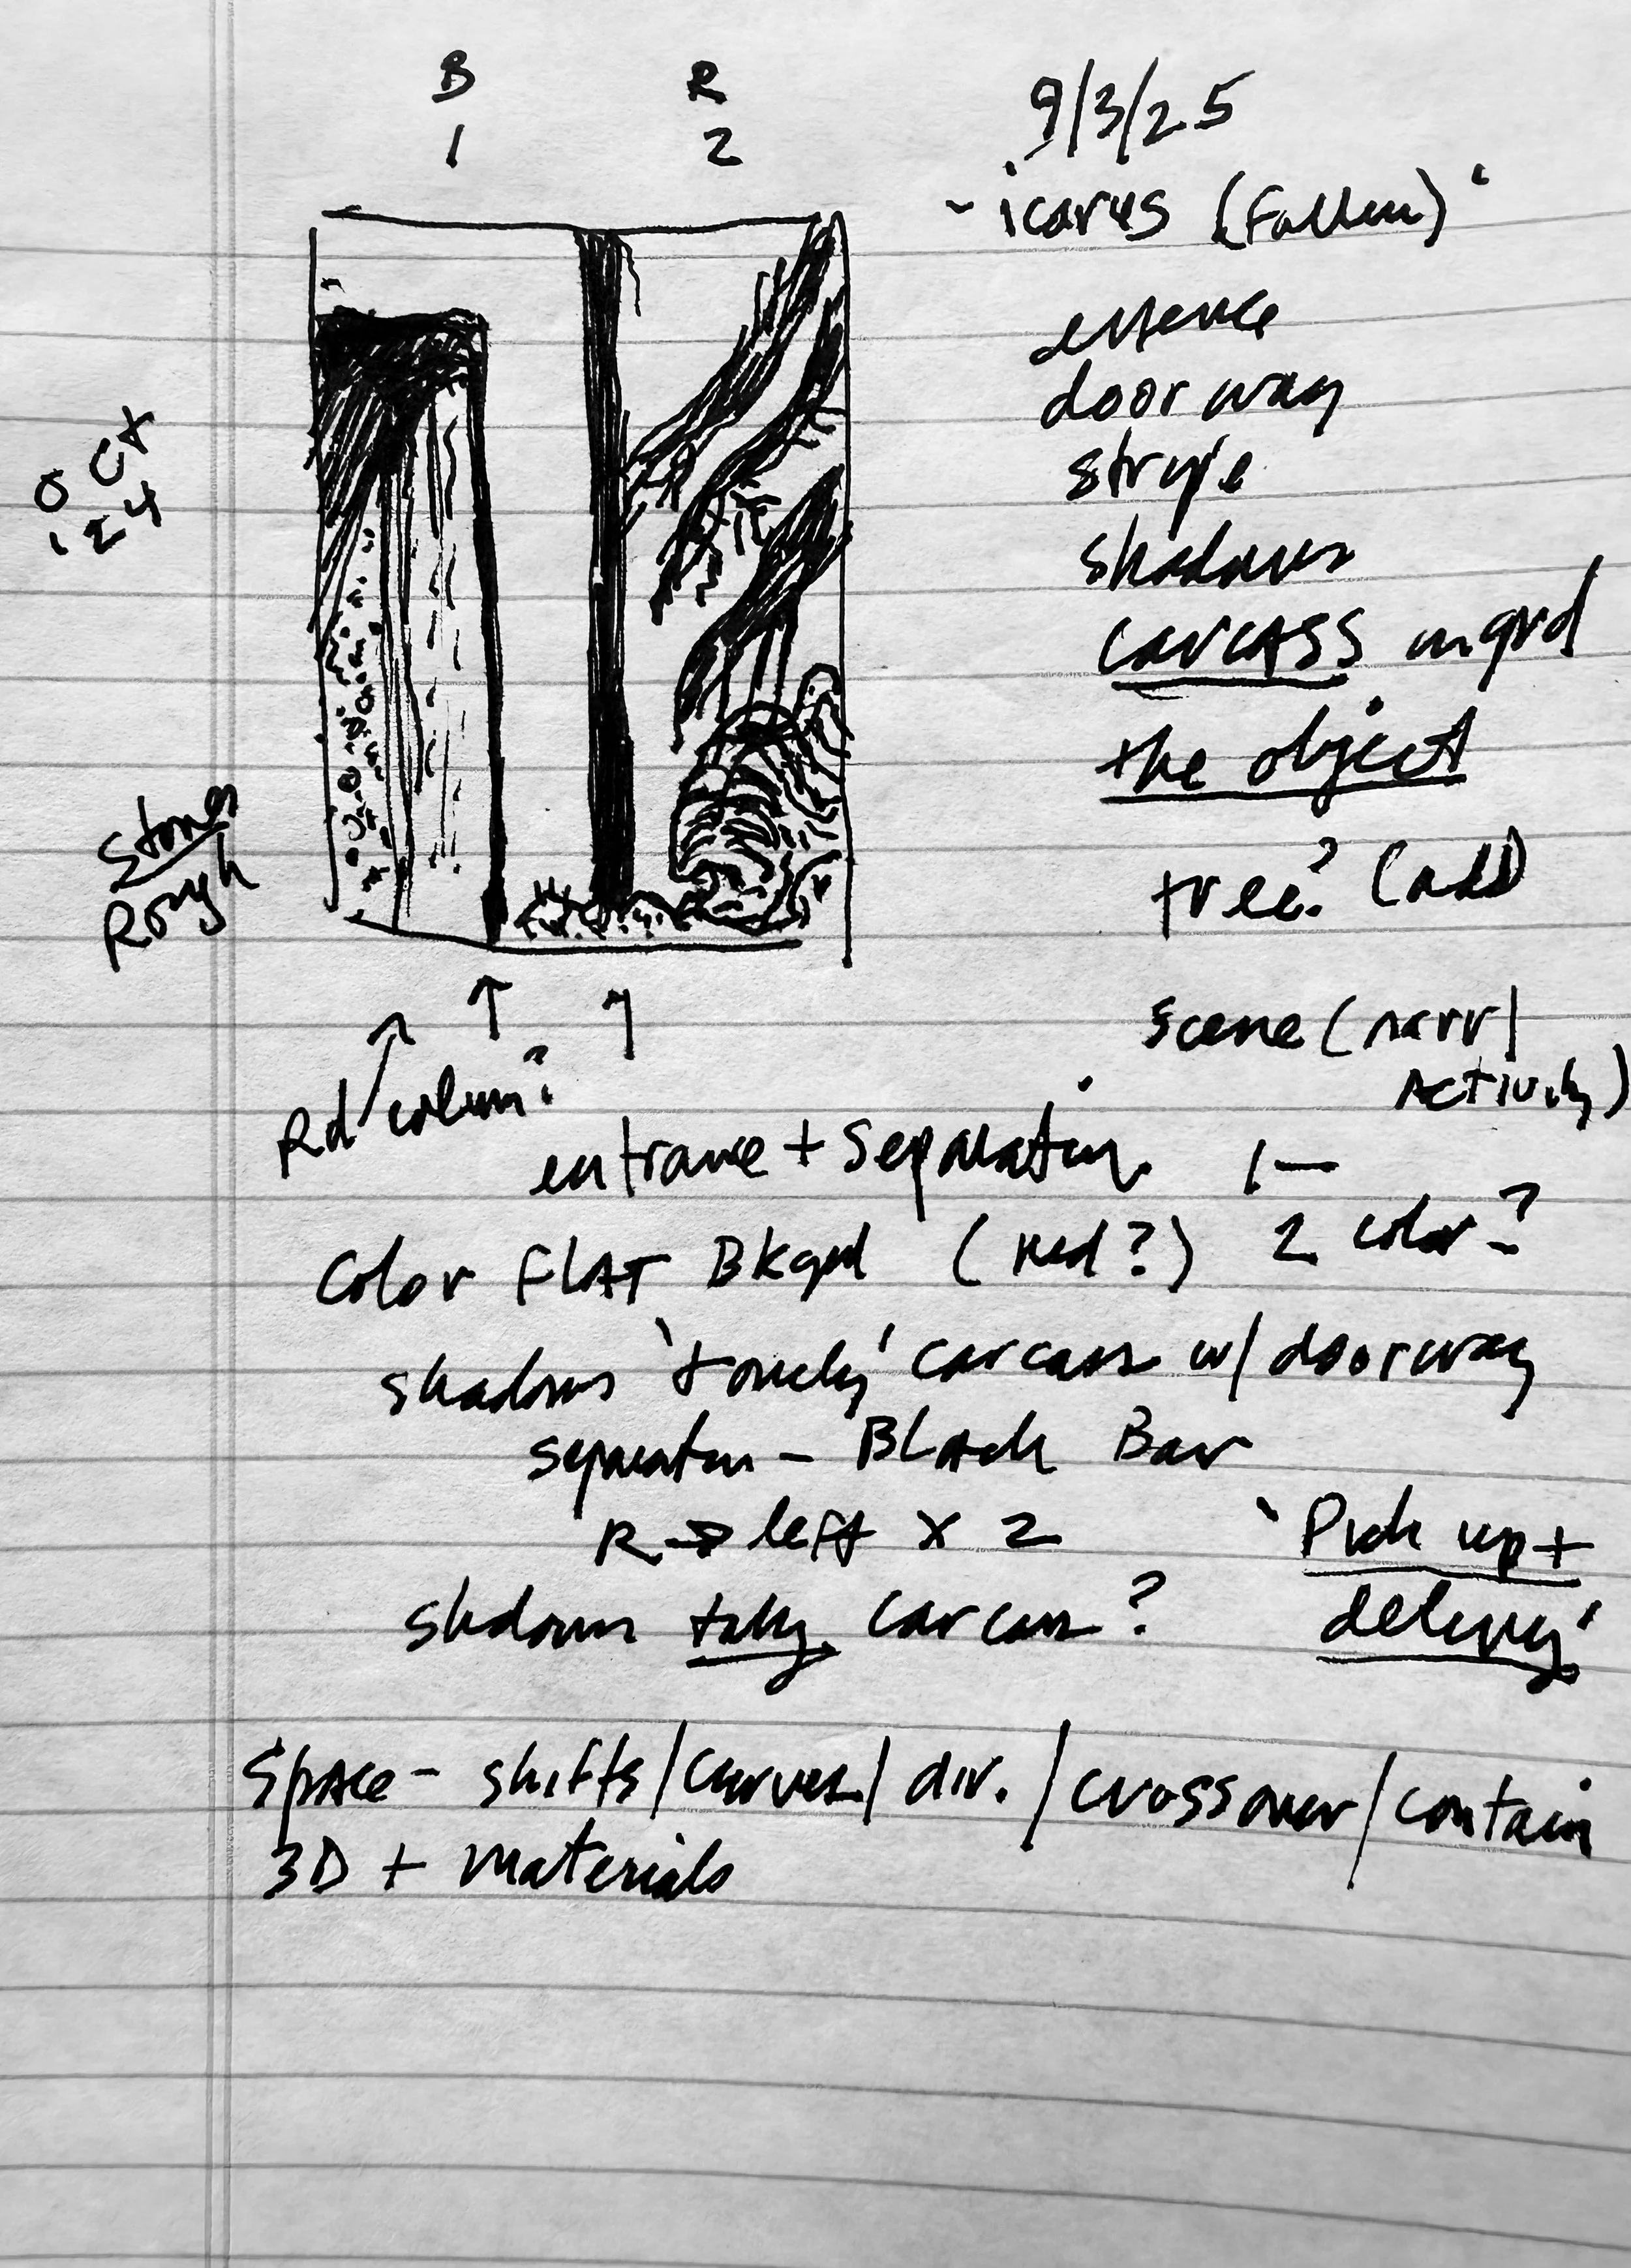 B R
1 2
9/3/25
- icarus (Fallen) '
essence
doorway
stripe
shadows
carcASS in grd
the object
tree? (add)
Oct
124
Stones
Rough
scene (narr/
Activity)
Rd column?
entrance + Separation 1—
Color FLAT Bkgrd (Red?) 2 color?
shadows 'touch' carcass w/ doorway
separation - BLAck Bar
R → left x 2 'Pick up +
delivery'
shadows carcass?
SpAce - shifts/curves/div./crossover/contain
3D + materials